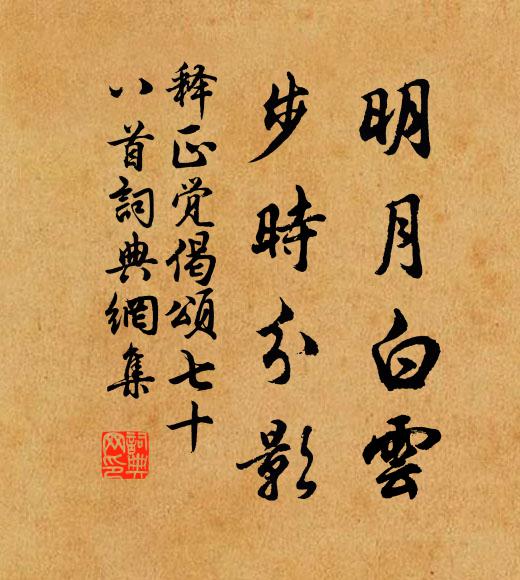 明月白雲
步時分影
释正觉偈頌七十
八首詞典網集
詞典
网印